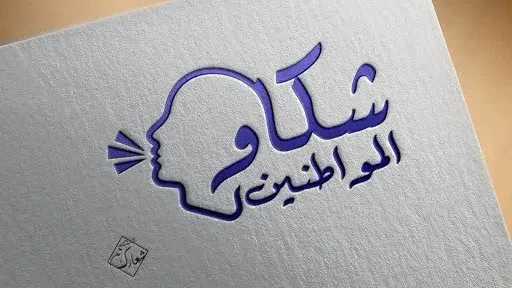 شكاوى
المواطنين